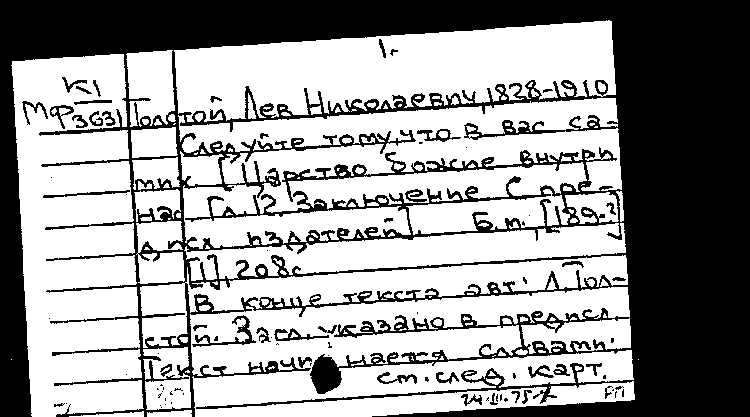 1.
К1
МФ3631 Толстой, Лев Николаевич, 1828-1910
Следуйте тому, что в вас са-
мих [Царство божие внутри
нас Гл. 12. Заключение С пре-
дисл. издателей]. Б.м., [189-?]
[1], 208с
В конце текста авт: Л. Тол-
стой. Загл. указано в предисл.
Текст начинается словами:
см. след. карт.
24.III.75г РП